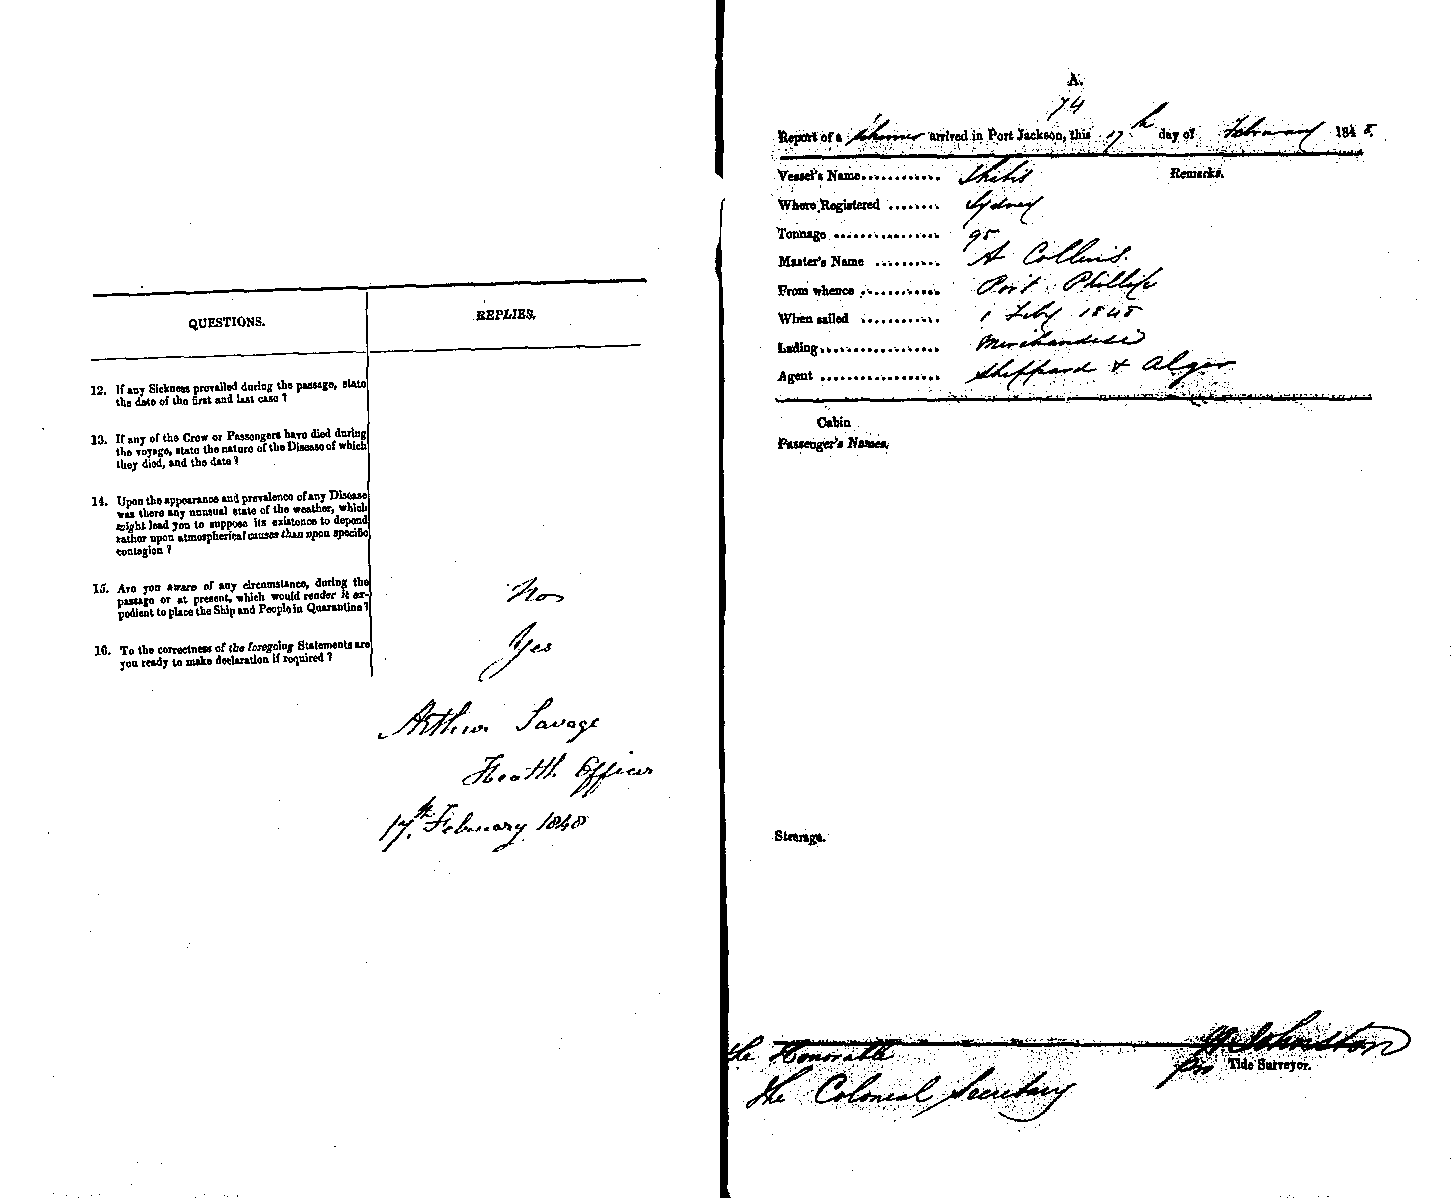 QUESTIONS.
REPLIES.
12. If any Sickness prevailed during the passage, state
the date of the first and last case ?
13. If any of the Crew or Passengers have died during
the voyage, state the nature of the Disease of which
they died, and the date ?
14. Upon the appearance and prevalence of any Disease
was there any unusual state of the weather, which
might lead you to suppose its existence to depend
rather upon atmospherical causes than upon specific
contagion ?
15. Are you aware of any circumstance, during the
passage or at present, which would render it ex-
pedient to place the Ship and People in Quarantine ?
No
16. To the correctness of the foregoing Statements are
you ready to make declaration if required ?
Yes
Arthur Savage
Health Officer
17th February 1848
A.
74
Report of a Schooner arrived in Port Jackson, this 17th day of February 1848.
Vessel's Name............ Thetis
Remarks.
Where Registered ........ Sydney
Tonnage ................ 95
Master's Name .......... A Collins.
From whence ............ Port Phillip
When sailed ............ 1 Feby 1848
Lading.................. Merchandise
Agent .................. Sheppard & Alger
Cabin
Passenger's Names.
Steerage.
H Johnston
pro Tide Surveyor.
The Honorable
The Colonial Secretary